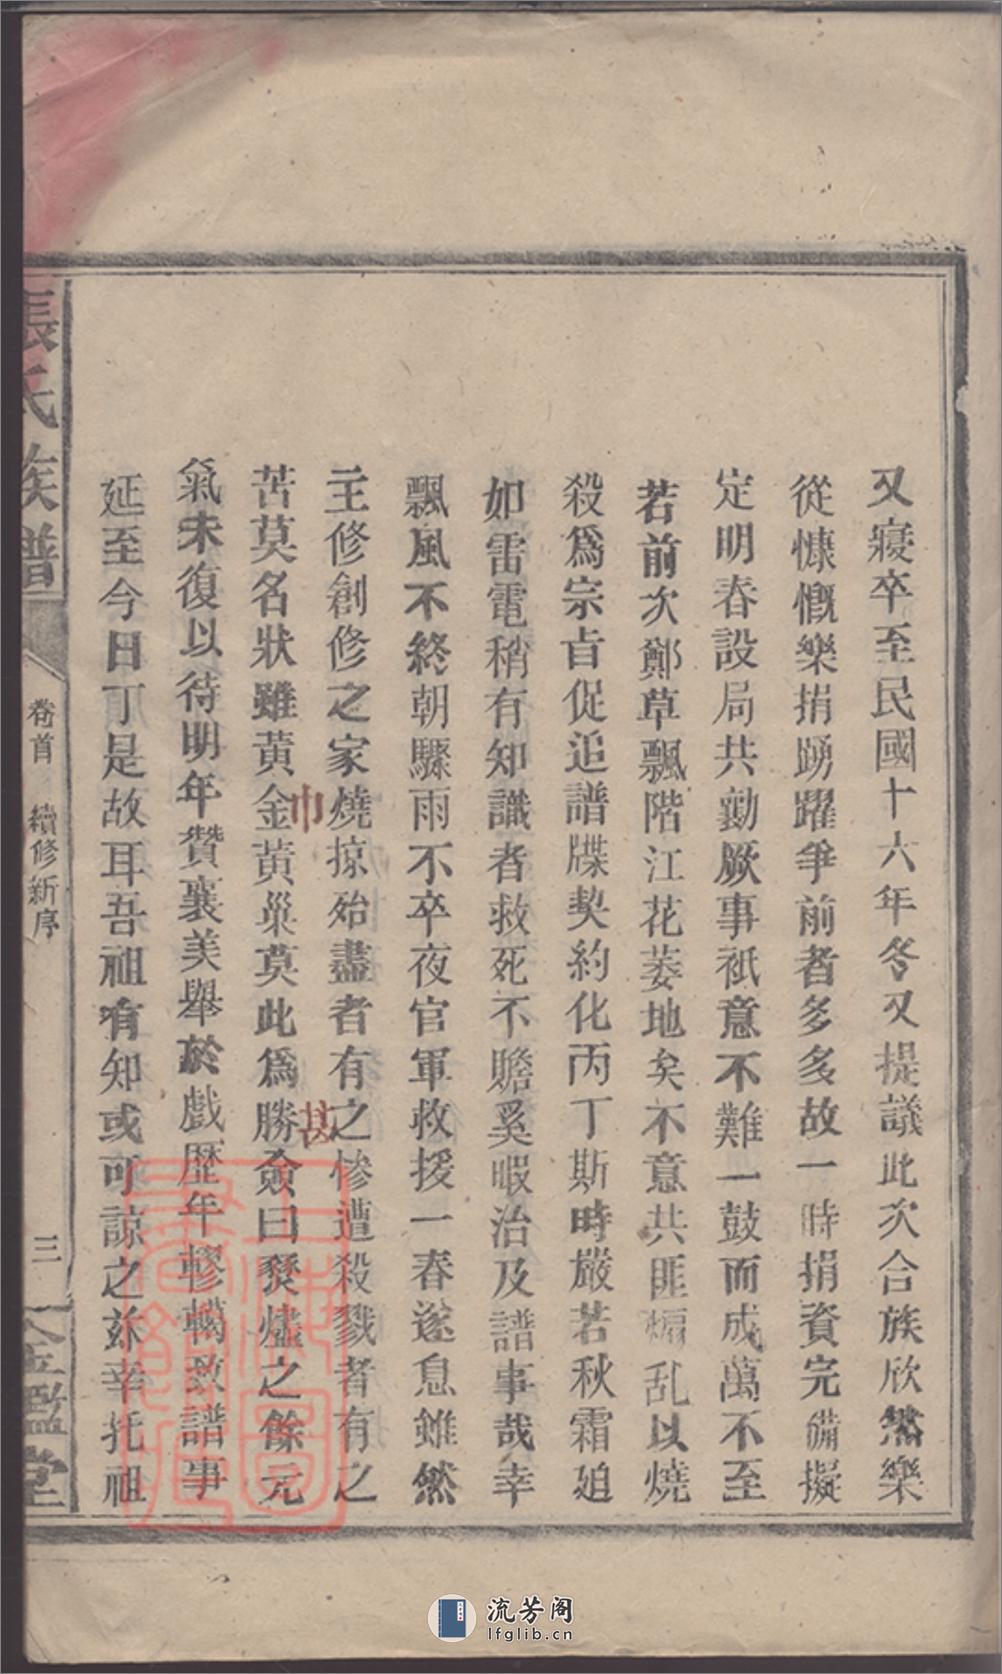 又寢卒至民國十六年冬又提議此次合族欣然樂
從慷慨樂捐踴躍爭前者多多故一時捐資完備擬
定明春設局共勷厥事祇意不難一鼓而成萬不至
若前次鄭草飄階江花萎地矣不意共匪煽乱以燒
殺爲宗旨促追譜牒契約化丙丁斯時嚴若秋霜廹
如雷電稍有知識者救死不贍奚暇治及譜事哉幸
飄風不終朝驟雨不卒夜官軍救援一春遂息雖然
主修創修之家燒掠殆盡者有之慘遭殺戮者有之
苦莫名狀雖黃金黃巢莫此爲勝僉曰燹燼之餘元
巾
甚
氣未復以待明年贊襄美舉於戲歷年轇轕致譜事
延至今日丁是故耳吾祖有知或可諒之兹幸托祖
張氏族譜
卷首
續修新序
三
金鑑堂
流芳阁
lfglib.cn